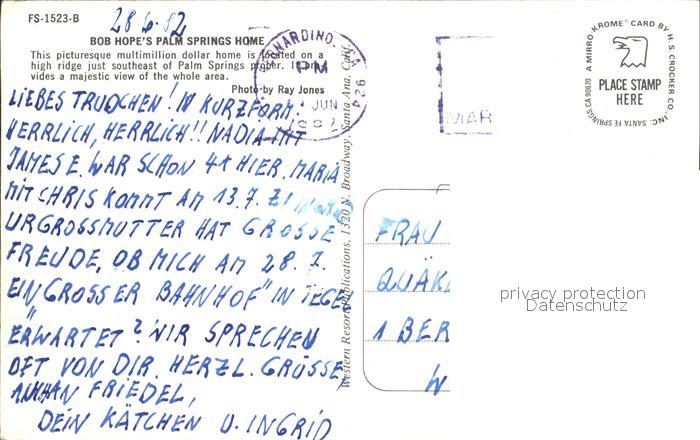 FS-1523-B
28.6.82
BOB HOPE'S PALM SPRINGS HOME
This picturesque multimillion dollar home is located on a
high ridge just southeast of Palm Springs proper. It pro-
vides a majestic view of the whole area.
Photo by Ray Jones
LIEBES TRUDCHEN! IN KURZFORM.
HERRLICH, HERRLICH!! NADIA MIT
JAMES E. WAR SCHON 4X HIER. MARIA
MIT CHRIS KOMMT AM 13.7.
URGROSSMUTTER HAT GROSSE
FREUDE, OB MICH AM 28.7.
EIN "GROSSER BAHNHOF" IN TEGEL
ERWARTET? WIR SPRECHEN
OFT VON DIR. HERZL. GRÜSSE
AN FRIEDEL,
DEIN KÄTCHEN U. INGRID
BERNARDINO, CA 924
PM
JUN
MAR
Western Resort Publications, 1320 N. Broadway, Santa Ana, Calif.
A MIRRO-KROME® CARD BY H. S. CROCKER CO., INC. SANTA FE SPRINGS, CA 90670
PLACE STAMP
HERE
FRAU
QUÄK
1 BER
W
privacy protection
Datenschutz